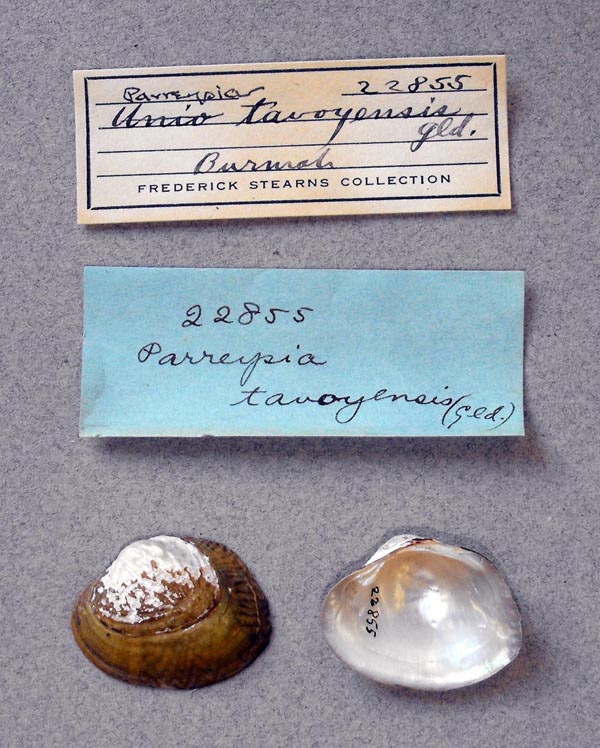 Parreysia 22855
Unio tavoyensis
gld.
Burmah
FREDERICK STEARNS COLLECTION
22855
Parreysia
tavoyensis (Gld.)
22855